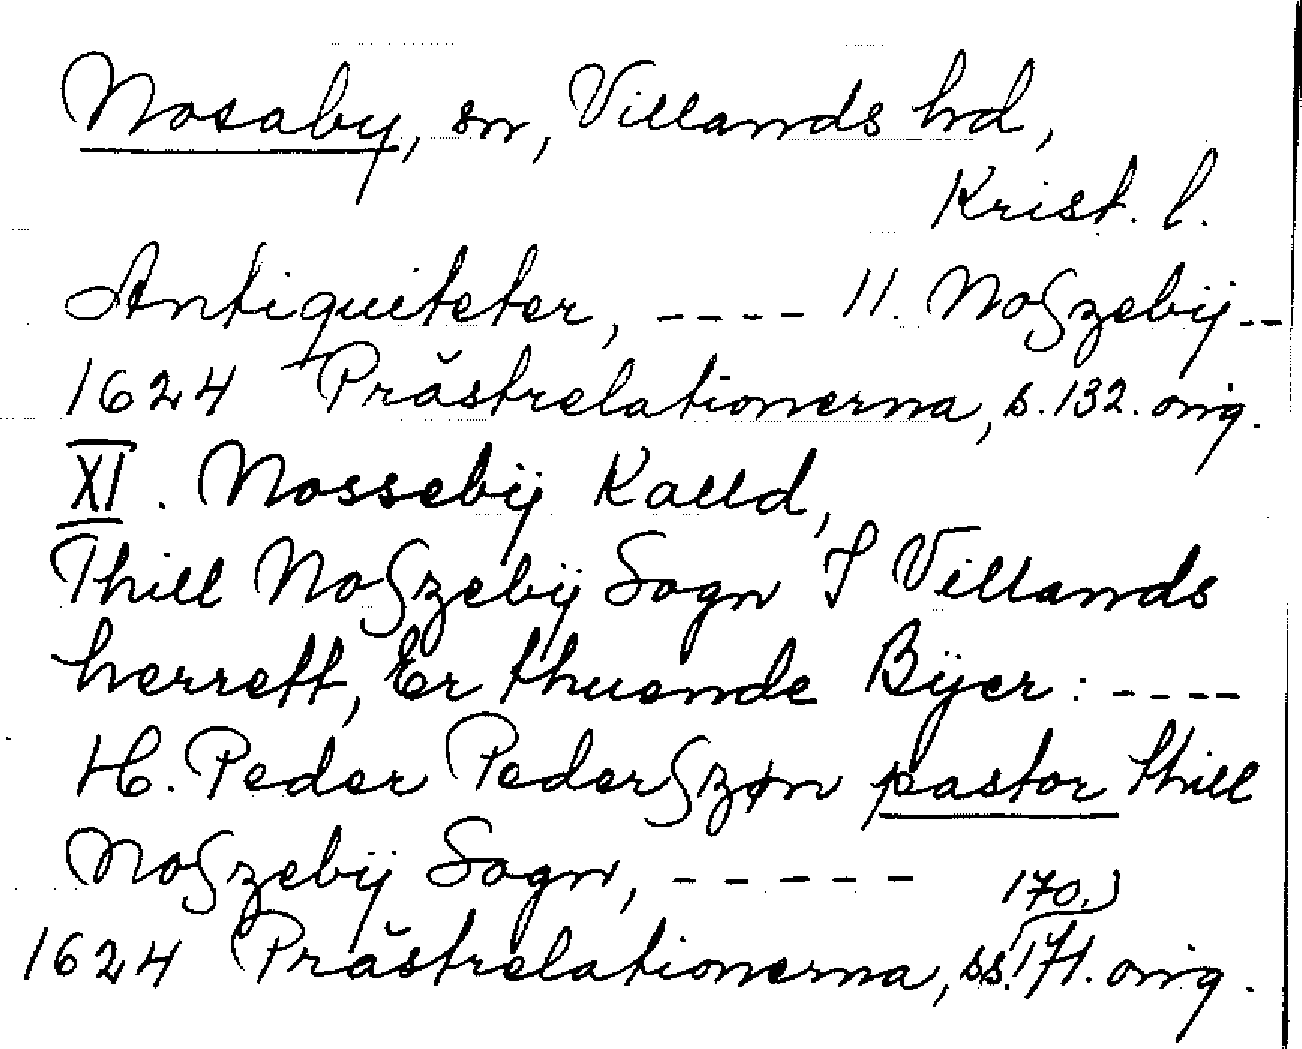 Nosaby, sn, Villands hd,
Krist. l.
Antiquiteter, ---- 11. Noſzebÿ --
1624 Prästrelationerna, s. 132. orig.
XI. Nossebÿ Kalld,
Thill Noſzebÿ Sogn I Villands
herrett, Er thuende Bÿer: ----
H. Peder Pederſzøn pastor thill
Noſzebÿ Sogn, -----
170.)
1624 Prästrelationerna, ss. 171. orig.